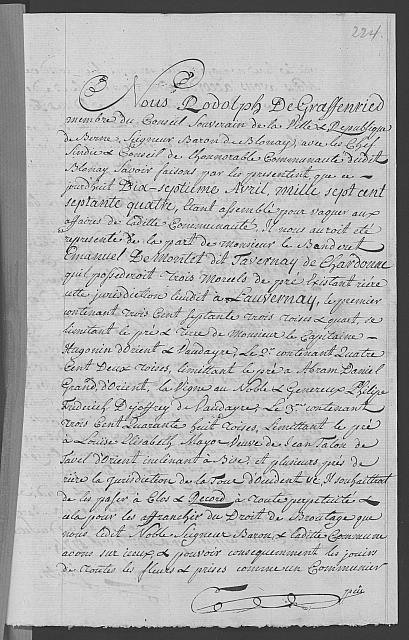 224.
Nous Rodolph De Graffenried
membre du Conseil Souverain de la Ville & Republique
de Berne, Seigneur Baron de Blonay, avec les Chef
Sindic & Conseil de lhonorable Communauté dudit
Blonay Savoir faisons par les presentes, que ce
jourdhuit Dix-septieme Avril, mille sept cent
septante quatre, Etant assemblé pour vaquer aux
affaires de ladite Communauté, Il nous auroit eté
representé de la part de monsieur le Banderet
Emanuel De Montet dit Tavernay de Chardonne
quil possederoit trois Morcels de pré Existant riere
cette jurisdiction lieudit à Lauvernay, le premier
contenant Trois Cent Septante trois toises & quart, se
limitant le pré & riere de Monsieur le Capitaine
Hugonin d'Orient & Vaudayre, Le 2e. contenant Quatre
Cent Deux toises, limittant le pré à Abram Daniel
Grand, d'Orient, la Vigne au Noble & Genereux Philipe
Frederich De joffrey de Vaudayre; Le 3me. contenant
Trois Cent Quarante huit toises, limittant le pré
à Louise Elisabeth Mayor Veuve de Jean Talon de
Tavel d'Orient inclinant à Bise, et plusieurs prés de
riere la Jurisdiction de la Tour d'Occident &c. Il souhaittait
de les passer à Clos & Record à toute perpetuité &
cela pour les affranchir du Droit de Broutage que
nous ledit Noble Seigneur Baron, & ladite Commune
avons sur iceux, & pouvoir consequemment les jouir
de toutes les fleurs & prises comme un Communier